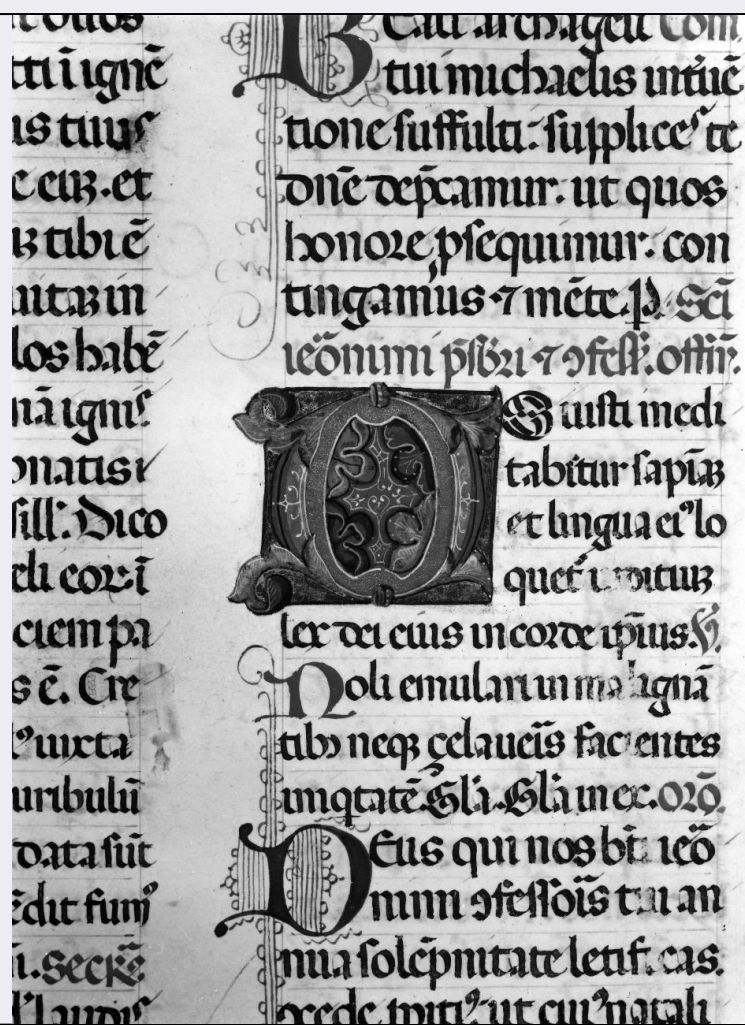 tti ī ignē
is tuus
e eiꝰ. et
tibi ē
los habē
nā ignis
onatis i
sill'. Dico
eli cori ī
ciem pa
s ē. Cre
iuxta
uribulū
data sūt
edit fumꝰ
Secrē.
Beati archāgeli tui
tui michaelis intꝰuē
tione suffulti: supplices te
dn̄e dep̄camur. ut quos
honore ꝓsequimur: con
tingamus ⁊ mēte. P. Sc̄i
ieōnimi p̄sb̄ri ⁊ ꝯfess̄. offm̄.
OS iusti medi
tabitur sapīaꝫ
et lingua eiꝰ lo
quet̄ iuditiuꝫ
lex dei eius in corde ip̄ius. V̄.
Noli emulari in malignā
tibꝫ neqꝫ çelaueīs facientes
iniqtatē. Gl̄a. Gl̄a in ex. Orō.
Deus qui nos bt̄i ieō
nimi ꝯfessoīs tui an
nua solēpnitate letificas.
ꝯcede ꝓpitiꝰ: ut cuiꝰ natali